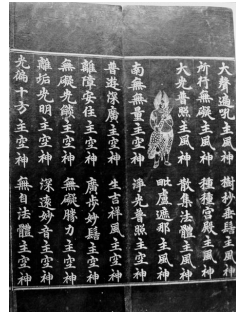 大聲遍吼主風神 樹杪垂髻主風神
所行無礙主風神 種種宮殿主風神
大光普照主風神 散集法體主風神
毗盧遮那主
南無無量主空神 淨光普照主空神
普遊深廣主空神 生吉祥風主空神
離障安住主空神 廣步妙髻主空神
無礙光焰主空神 無礙勝力主空神
離垢光明主空神 深遠妙音主空神
光徧十方主空神 無自法體主空神